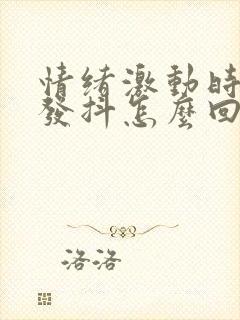 情緒激動時
發抖怎麼回
洛洛